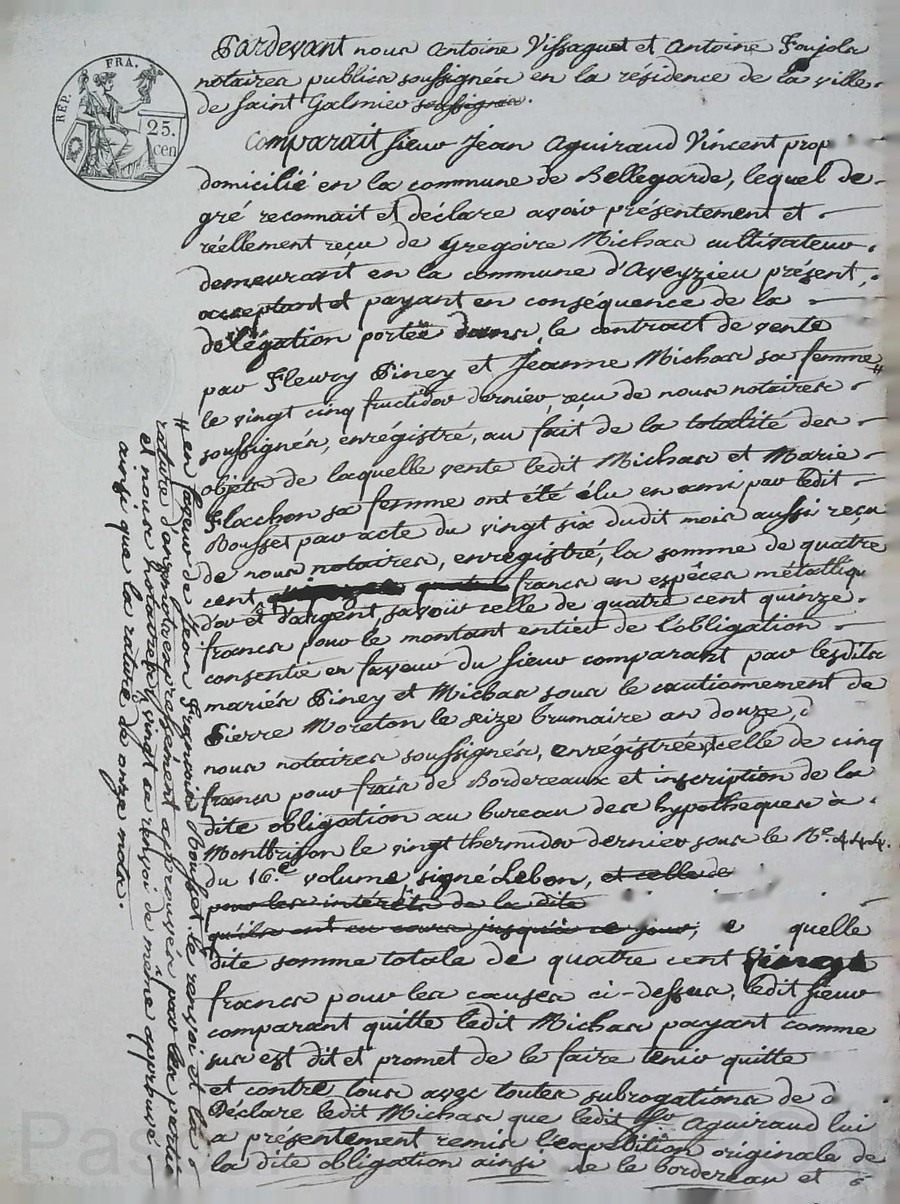 RÉP. FRA.
25.
cen
Pardevant nous Antoine Vissaguet et Antoine Foujols
notaires publics soussignés en la résidence de la ville
de Saint Galmier soussignés.
Comparait sieur Jean Aguiraud Vincent prop
domicilié en la commune de Bellegarde, lequel de
gré reconnait et déclare avoir présentement et
réellement reçu de Gregoire Michas cultivateur
demeurant en la commune d'Aveyzieu présent,
acceptant et payant en conséquence de la
délégation portée dans, le contrait de vente
par Fleury Piney et Jeanne Michas sa femme #
le vingt cinq fructidor dernier reçu de nous notaires
soussignés, enrégistré, au fait de la totalité des
objets de laquelle vente ledit Michas et Marie
Flachon sa femme ont été élu en ami par ledit
Bousset par acte du vingt six dudit mois aussi reçu
de nous notaires, enregistré, la somme de quatre
cent francs en espèces métalliq
d'or et d'argent, savoir celle de quatre cent quinze
francs pour le montant entier de l'obligation
consentie en faveur du sieur comparant par lesdits
mariés Piney et Michas sous le cautionnement de
Pierre Moreton le seize brumaire an douze, d
nous notaires soussignés, enrégistrée, celle de cinq
francs pour frais de Bordereaux et inscription de la
dite obligation au bureau des hypotheques à
Montbrison le vingt thermidor dernier sous le N.e 444.
du 16.e volume, signé Lebon, et celle de
pour les intérêts de la dite
qu'ils ont eu cours jusqu'à ce jour, e quelle
dite somme totale de quatre cent vingt
francs pour les causes ci-dessus, ledit sieur
comparant quitte ledit Michas payant comme
sus est dit et promet de le faire tenir quitte
et contre tous avec toutes subrogations de d
Déclare ledit Michas que ledit Sr. Aguiraud lui
a présentement remis l'expédition originale de
la dite obligation ainsi e le bordereau et
# en faveur de Jean François Bousset le renvoi et la
rature d'onze mots expressément approuvés par les partie
et nous notaires vingt ce renvoi de même approuvé
ainsi que la rature de onze mots.